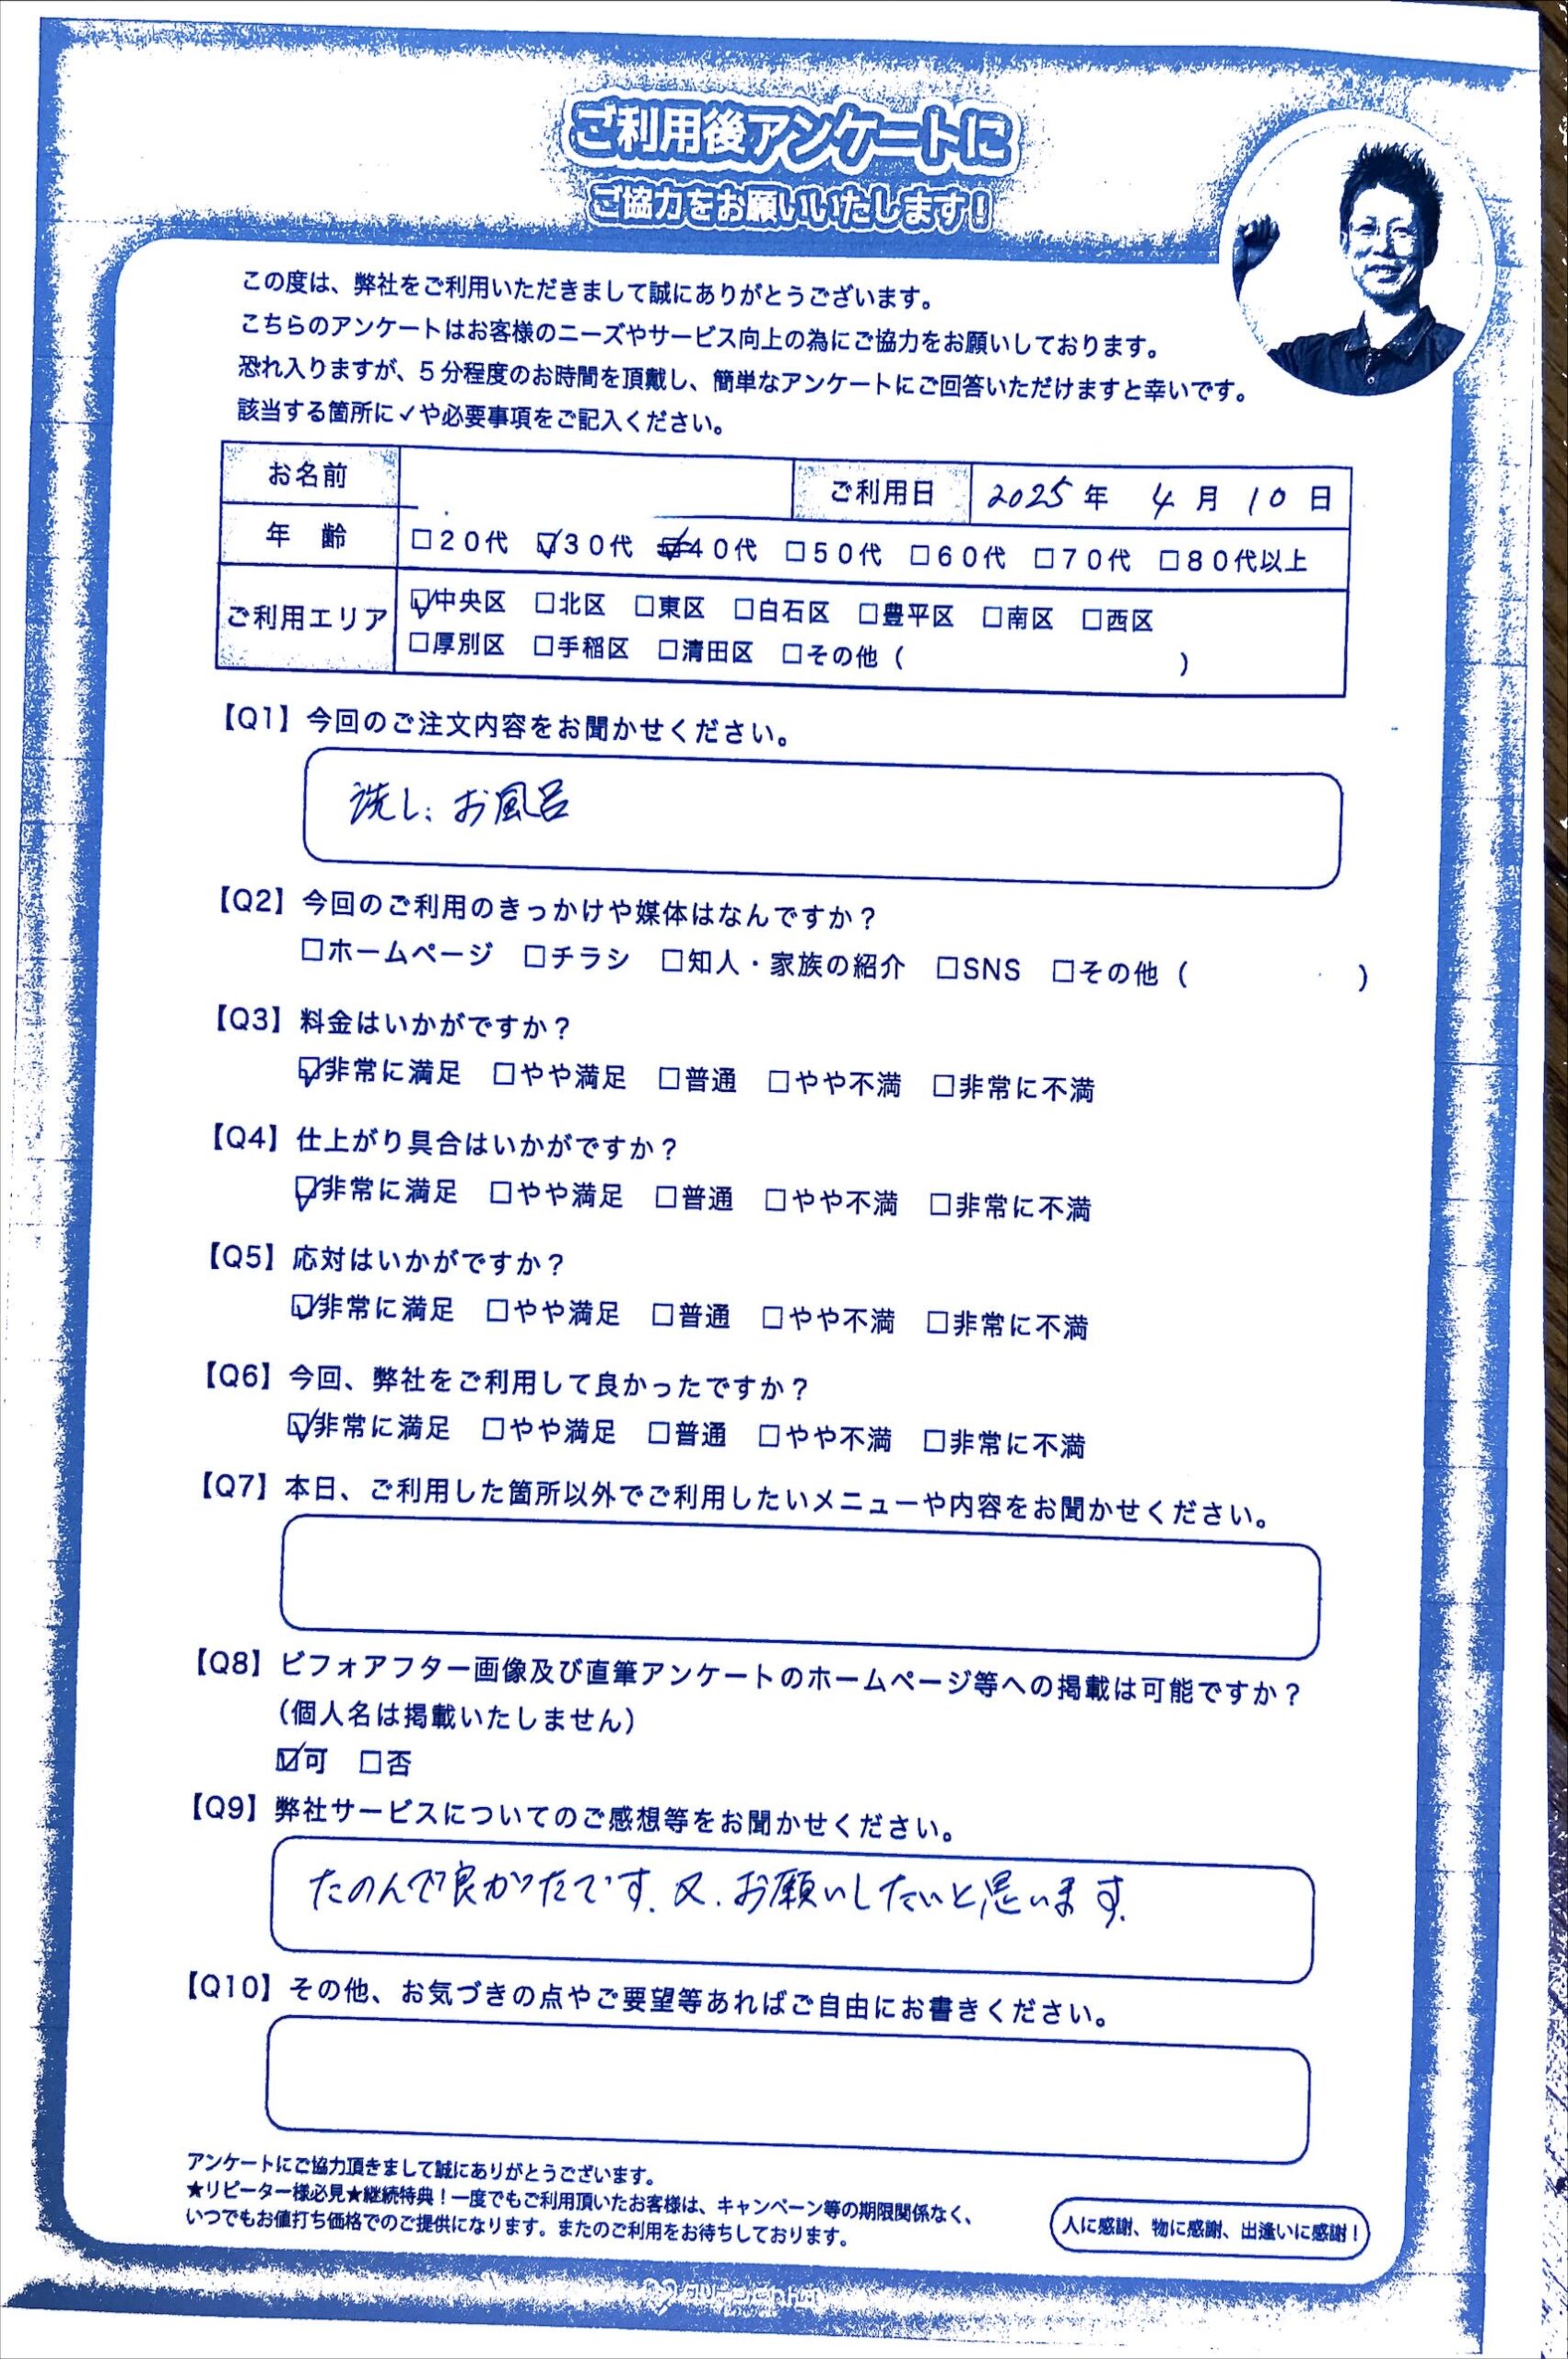 ご利用後アンケートに
ご協力をお願いいたします!
この度は、弊社をご利用いただきまして誠にありがとうございます。
こちらのアンケートはお客様のニーズやサービス向上の為にご協力をお願いしております。
恐れ入りますが、5分程度のお時間を頂戴し、簡単なアンケートにご回答いただけますと幸いです。
該当する箇所に✓や必要事項をご記入ください。
お名前 ご利用日 2025年 4月 10日
年 齢 □20代 ☑30代 ☑40代 □50代 □60代 □70代 □80代以上
ご利用エリア ☑中央区 □北区 □東区 □白石区 □豊平区 □南区 □西区
□厚別区 □手稲区 □清田区 □その他( )
【Q1】今回のご注文内容をお聞かせください。
お風呂
【Q2】今回のご利用のきっかけや媒体はなんですか?
□ホームページ □チラシ □知人・家族の紹介 □SNS □その他( )
【Q3】料金はいかがですか?
☑非常に満足 □やや満足 □普通 □やや不満 □非常に不満
【Q4】仕上がり具合はいかがですか?
☑非常に満足 □やや満足 □普通 □やや不満 □非常に不満
【Q5】応対はいかがですか?
☑非常に満足 □やや満足 □普通 □やや不満 □非常に不満
【Q6】今回、弊社をご利用して良かったですか?
☑非常に満足 □やや満足 □普通 □やや不満 □非常に不満
【Q7】本日、ご利用した箇所以外でご利用したいメニューや内容をお聞かせください。
【Q8】ビフォアフター画像及び直筆アンケートのホームページ等への掲載は可能ですか?
(個人名は掲載いたしません)
☑可 □否
【Q9】弊社サービスについてのご感想等をお聞かせください。
たのんで良かったです.又.お願いしたいと思います.
【Q10】その他、お気づきの点やご要望等あればご自由にお書きください。
アンケートにご協力頂きまして誠にありがとうございます。
★リピーター様必見★継続特典!一度でもご利用頂いたお客様は、キャンペーン等の期限関係なく、
いつでもお値打ち価格でのご提供になります。またのご利用をお待ちしております。
人に感謝、物に感謝、出逢いに感謝!